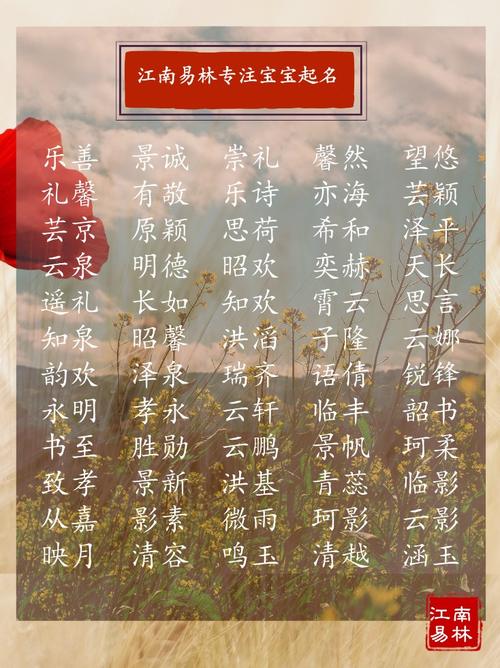 江南易林专注宝宝起名
乐善 景诚 崇礼 馨然 望悠
礼馨 有敬 乐诗 亦海 芸颖
芸京 原颖 思荷 希和 泽平
云泉 明德 昭欢 奕赫 天长
遥礼 长如 知欢 霄云 思言
知泉 昭馨 洪滔 子隆 云娜
韵欢 泽泉 瑞齐 语倩 锐锋
永明 孝永 云轩 临丰 韶书
书至 胜勋 云鹏 景帆 珂柔
致孝 景新 洪基 青蕊 临影
从嘉 影素 微雨 珂影 云影
映月 清容 鸣玉 清越 涵玉
江南
易林